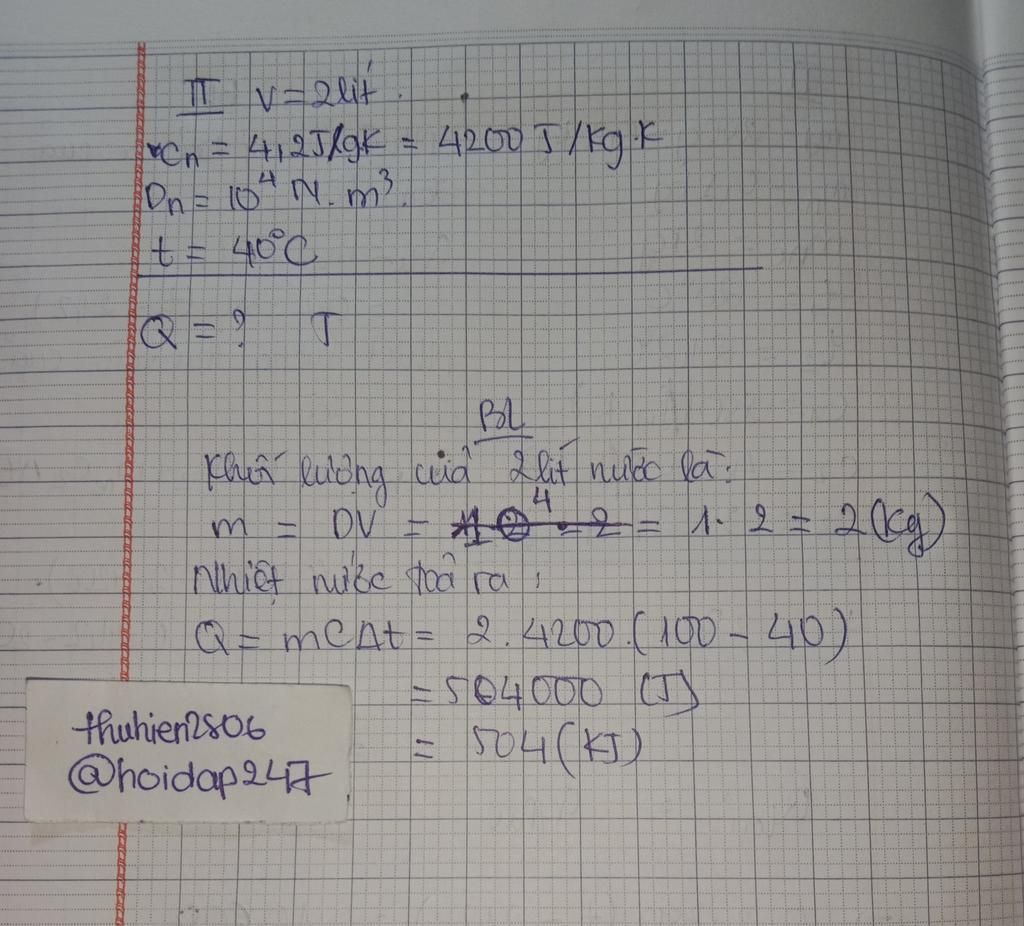 II V = 2lit.
Cn = 4,2J/gK = 4200 J/kg.K
Dn = 10⁴ N.m³.
t = 40°C
Q = ? J
BL
Khối lượng của 2lít nước là:
m = DV = 1̶0̶⁴̶ ̶.̶ ̶2̶ = 1.2 = 2 (kg)
Nhiệt nước toả ra:
Q = mCΔt = 2.4200.(100 - 40)
= 504000 (J)
= 504 (KJ)
thuhien2806
@hoidap247